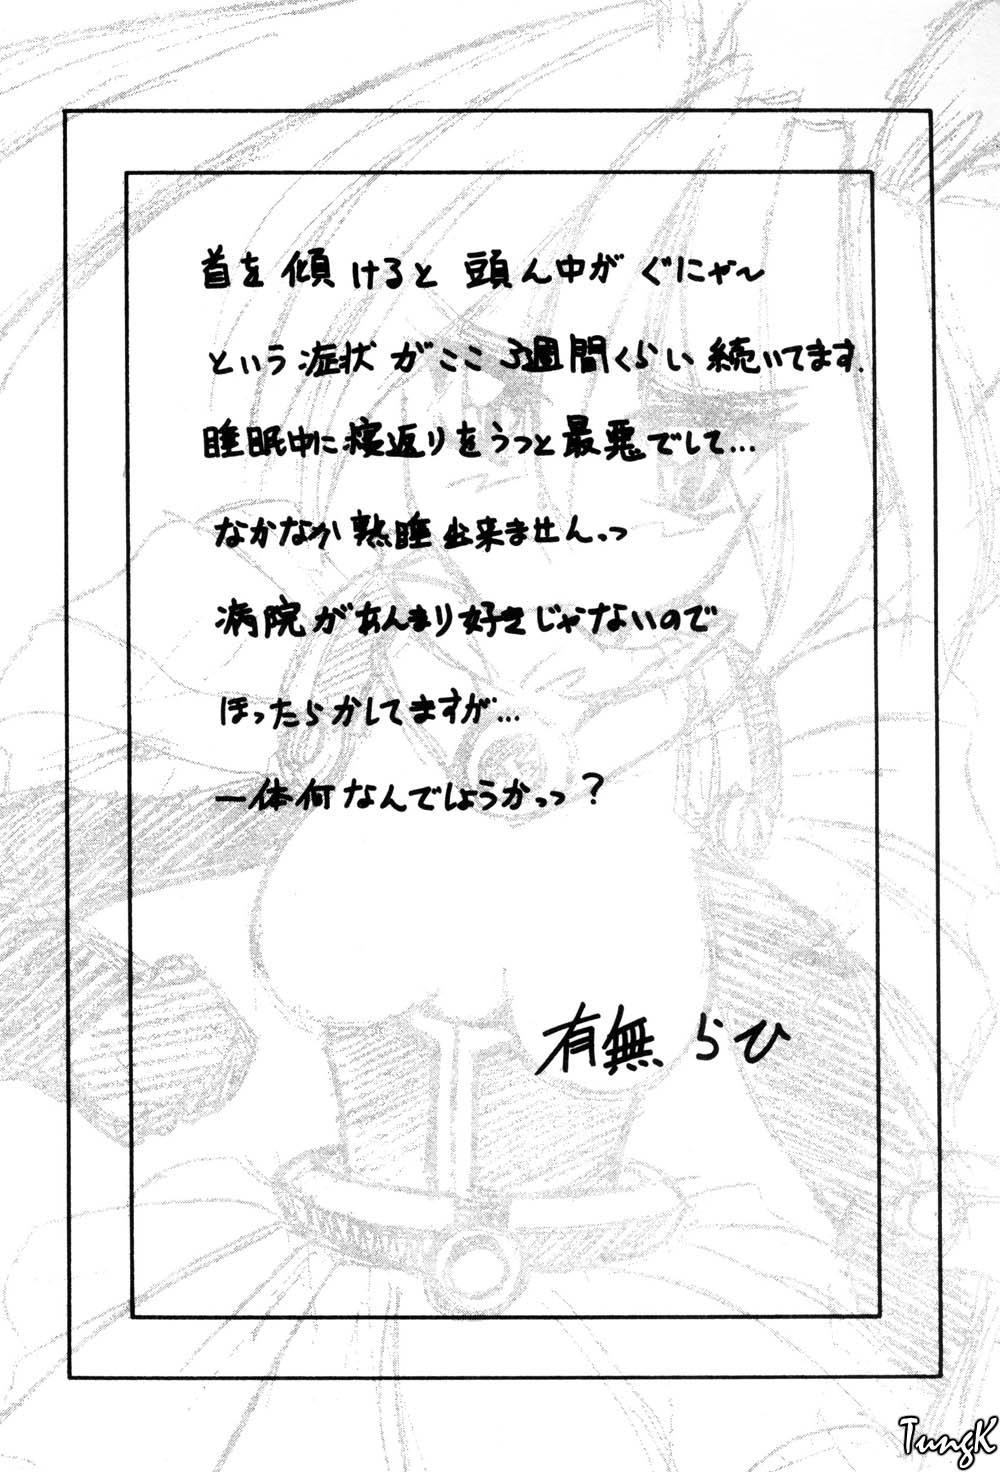 首を傾けると頭ん中がぐにゃ〜
という症状がここ3週間くらい続いてます.
睡眠中に寝返りをうつと最悪でして...
なかなか熟睡出来ません.っ
病院があんまり好きじゃないので
ほったらかしてますが...
一体何なんでしょうかっっ?
有無らひ
TungK